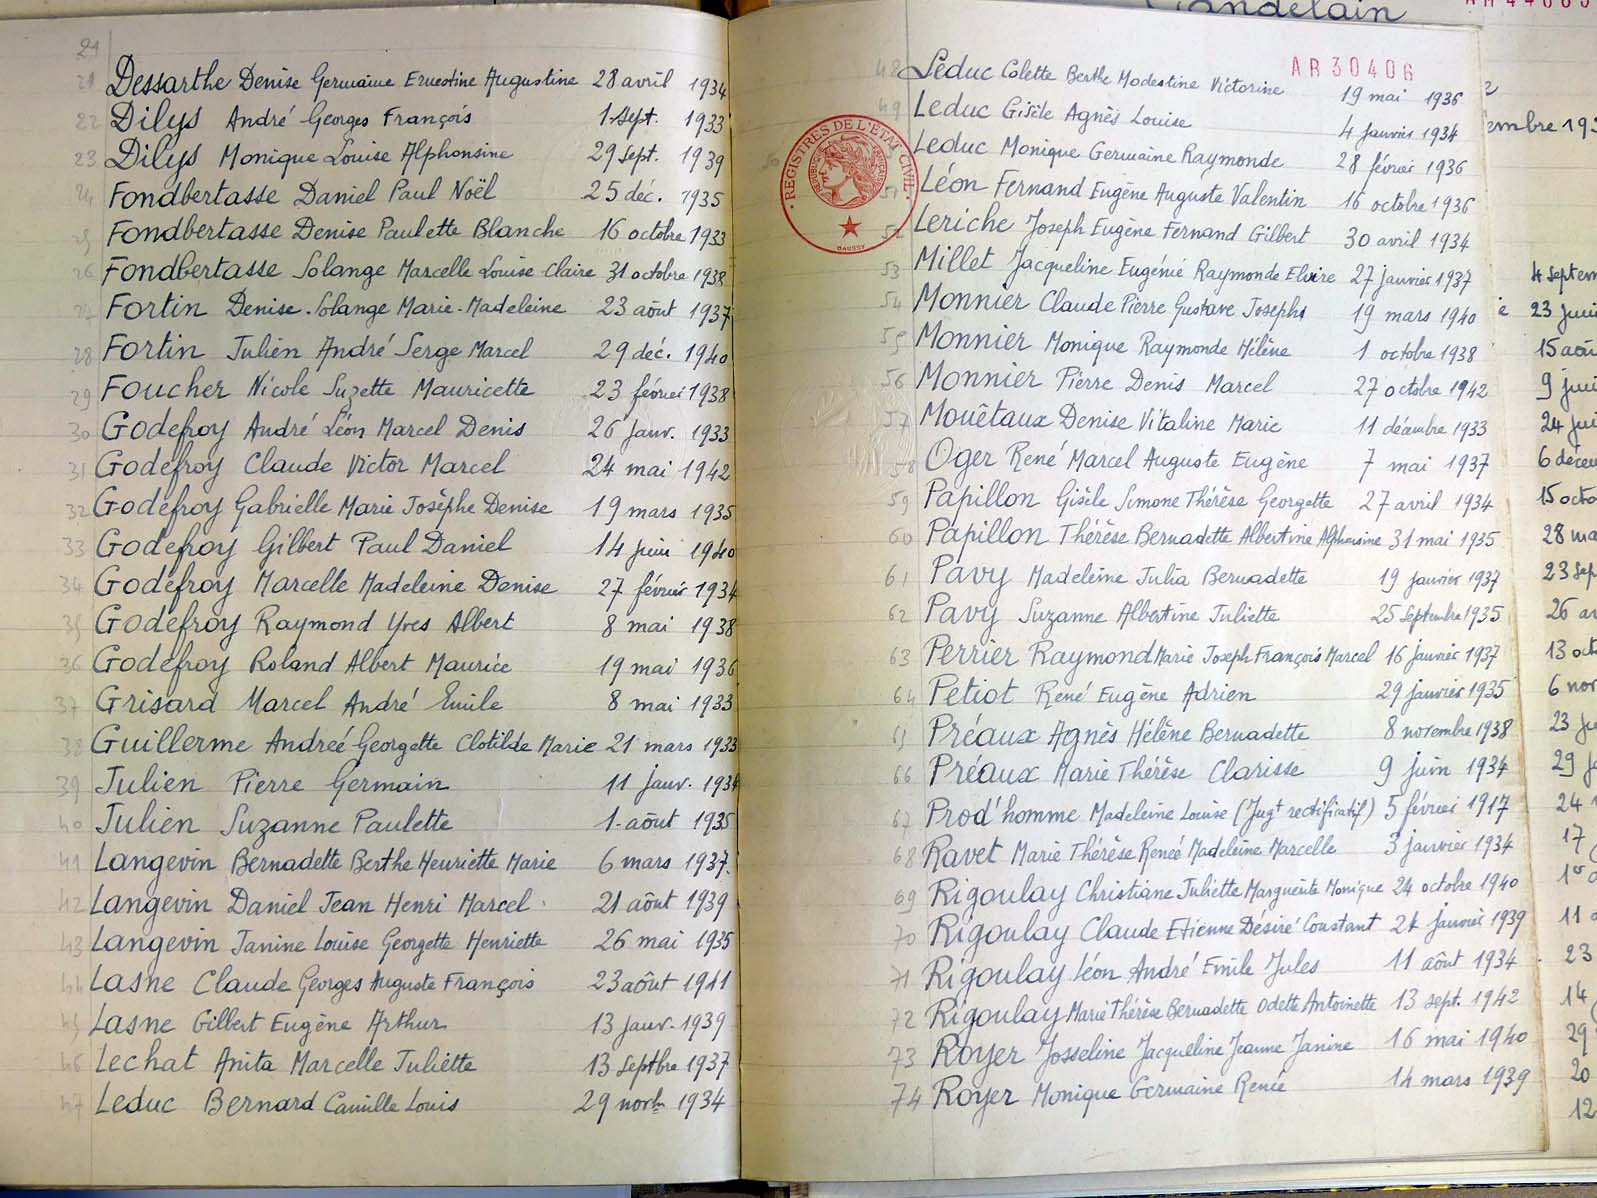 21
21 Dessarthe Denise Germaine Ernestine Augustine 28 avril 1934
22 Dilys André Georges François 1 Sept. 1933
23 Dilys Monique Louise Alphonsine 29 Sept. 1939
24 Fondbertasse Daniel Paul Noël 25 déc. 1935
25 Fondbertasse Denise Paulette Blanche 16 octobre 1933
26 Fondbertasse Solange Marcelle Louise Claire 31 octobre 1938
27 Fortin Denise-Solange Marie-Madeleine 23 août 1937
28 Fortin Julien André Serge Marcel 29 déc. 1940
29 Foucher Nicole Suzette Mauricette 23 février 1938
30 Godefroy André Léon Marcel Denis 26 janv. 1933
31 Godefroy Claude Victor Marcel 24 mai 1942
32 Godefroy Gabrielle Marie Josèphe Denise 19 mars 1935
33 Godefroy Gilbert Paul Daniel 14 juin 1940
34 Godefroy Marcelle Madeleine Denise 27 février 1934
35 Godefroy Raymond Yves Albert 8 mai 1938
36 Godefroy Roland Albert Maurice 19 mai 1936
37 Grisard Marcel André Emile 8 mai 1933
38 Guillerme Andreé Georgette Clotilde Marie 21 mars 1933
39 Julien Pierre Germain 11 janv. 1934
40 Julien Suzanne Paulette 1 août 1935
41 Langevin Bernadette Berthe Henriette Marie 6 mars 1937.
42 Langevin Daniel Jean Henri Marcel 21 août 1939
43 Langevin Janine Louise Georgette Henriette 26 mai 1935
44 Lasne Claude Georges Auguste François 23 août 1941
45 Lasne Gilbert Eugène Arthur 13 janv. 1939
46 Lechat Anita Marcelle Juliette 13 Septbre 1937
47 Leduc Bernard Camille Louis 29 novb 1934
AR30406
48 Leduc Colette Berthe Modestine Victorine 19 mai 1936
49 Leduc Gisèle Agnès Louise 4 janvier 1934
50 Leduc Monique Germaine Raymonde 28 février 1936
51 Léon Fernand Eugène Auguste Valentin 16 octobre 1936
52 Leriche Joseph Eugène Fernand Gilbert 30 avril 1934
53 Millet Jacqueline Eugénie Raymonde Elvire 27 janvier 1937
54 Monnier Claude Pierre Gustave Joseph 19 mars 1940
55 Monnier Monique Raymonde Hélène 1 octobre 1938
56 Monnier Pierre Denis Marcel 27 octobre 1942
57 Mouêtaux Denise Vitaline Marie 11 décembre 1933
58 Oger René Marcel Auguste Eugène 7 mai 1937
59 Papillon Gisèle Simone Thérèse Georgette 27 avril 1934
60 Papillon Thérèse Bernadette Albertine Alphonsine 31 mai 1935
61 Pavy Madeleine Julia Bernadette 19 janvier 1937
62 Pavy Suzanne Albertine Juliette 25 Septembre 1935
63 Perrier Raymond Marie Joseph François Marcel 16 janvier 1937
64 Petiot René Eugène Adrien 29 janvier 1935
65 Préaux Agnès Hélène Bernadette 8 novembre 1938
66 Préaux Marie Thérèse Clarisse 9 juin 1934
67 Prod'homme Madeleine Louise (Jugt rectificatif) 5 février 1917
68 Ravet Marie Thérèse Reneé Madeleine Marcelle 3 janvier 1934
69 Rigoulay Christiane Juliette Marguerite Monique 24 octobre 1940
70 Rigoulay Claude Etienne Désiré Constant janvier 1939
71 Rigoulay Léon André Emile Jules 11 août 1934
72 Rigoulay Marie Thérèse Bernadette Odette Antoinette 13 sept. 1942
73 Royer Josseline Jacqueline Jeanne Janine 16 mai 1940
74 Royer Monique Germaine Renée 14 mars 1939
REGISTRES DE L'ETAT CIVIL
embre 193
4 Septem
23 juin
15 aoû
9 jui
24 jui
6 décem
15 octo
28 ma
23 sep
26 av
13 oct
6 nov
23 ju
29 j
24
17
1er
11
23
14
29
20
12